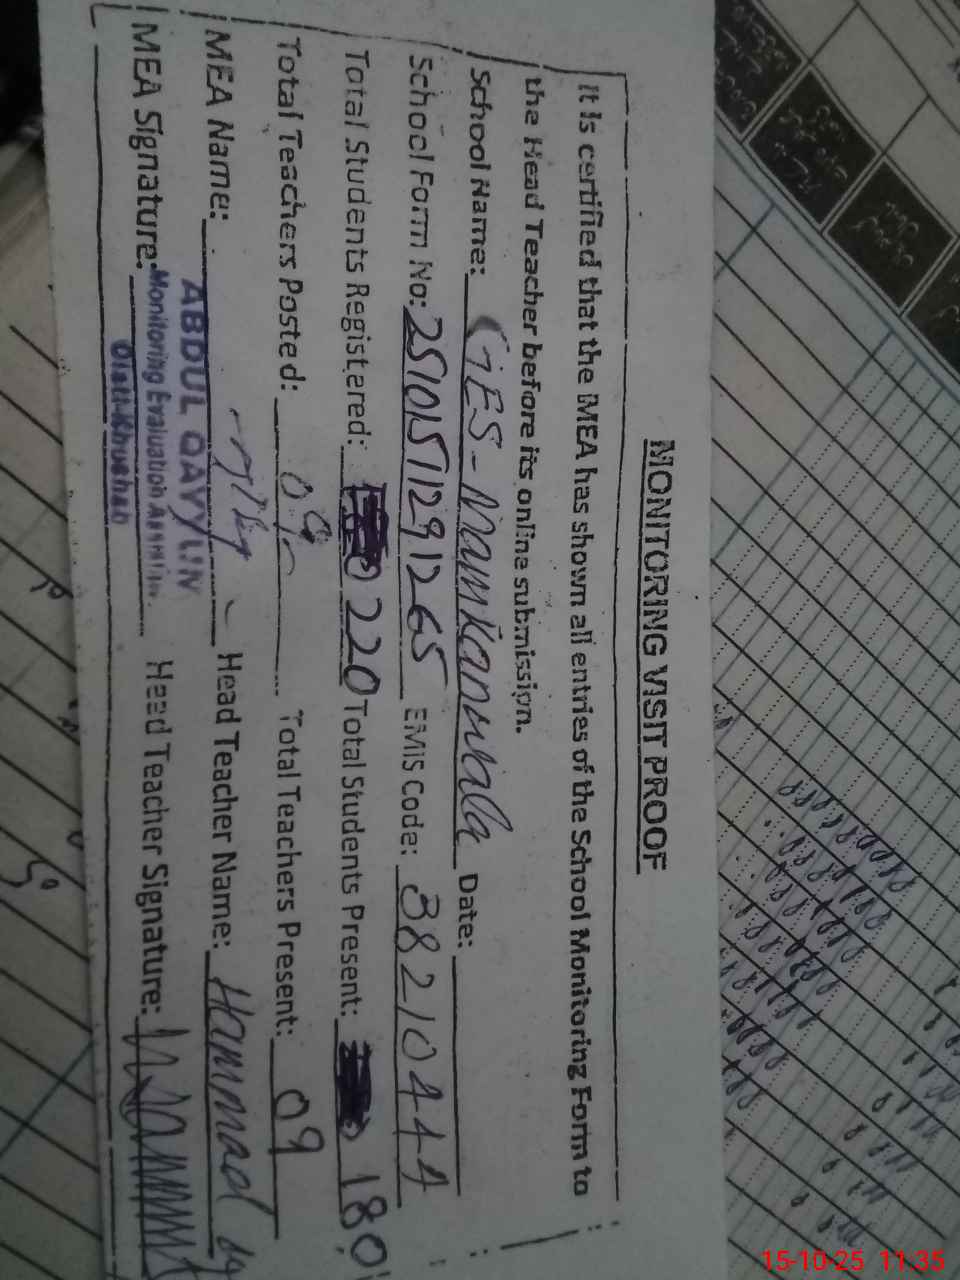 MONITORING VISIT PROOF
It is certified that the MEA has shown all entries of the School Monitoring Form to
the Head Teacher before its online submission.
School Name: GES-Mamkanwala Date:
School Form No: 251015112911265 EMIS Code: 38210444
Total Students Registered: 220 Total Students Present: 180
Total Teachers Posted: 09 Total Teachers Present: 09
MEA Name: ABDUL QAYYUN Head Teacher Name: Hammad
Monitoring Evaluation Assistant
Distt: Khushab
MEA Signature: Head Teacher Signature:
15-10-25 11:35